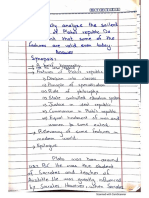 analyze the salient
of Plato's republic. Do
think that some of the
features are valid even today
Answer
Synopsis:
→ A brief biography
→ Features of Plato's republic
→ Division into classes
→ Principle of specialization
→ Rule of philosophy
→ State controlled education system
→ Justice in ideal republic
→ Communism in Plato's republic
→ Equal treatment for men and
women
→ Relevancy of some features in
modern world
→ Epilogue
Plato was born around
BC. He was the student
of Socrates and teacher of
Aristotle. He was greatly influenced
by Socrates. However, when Socrates